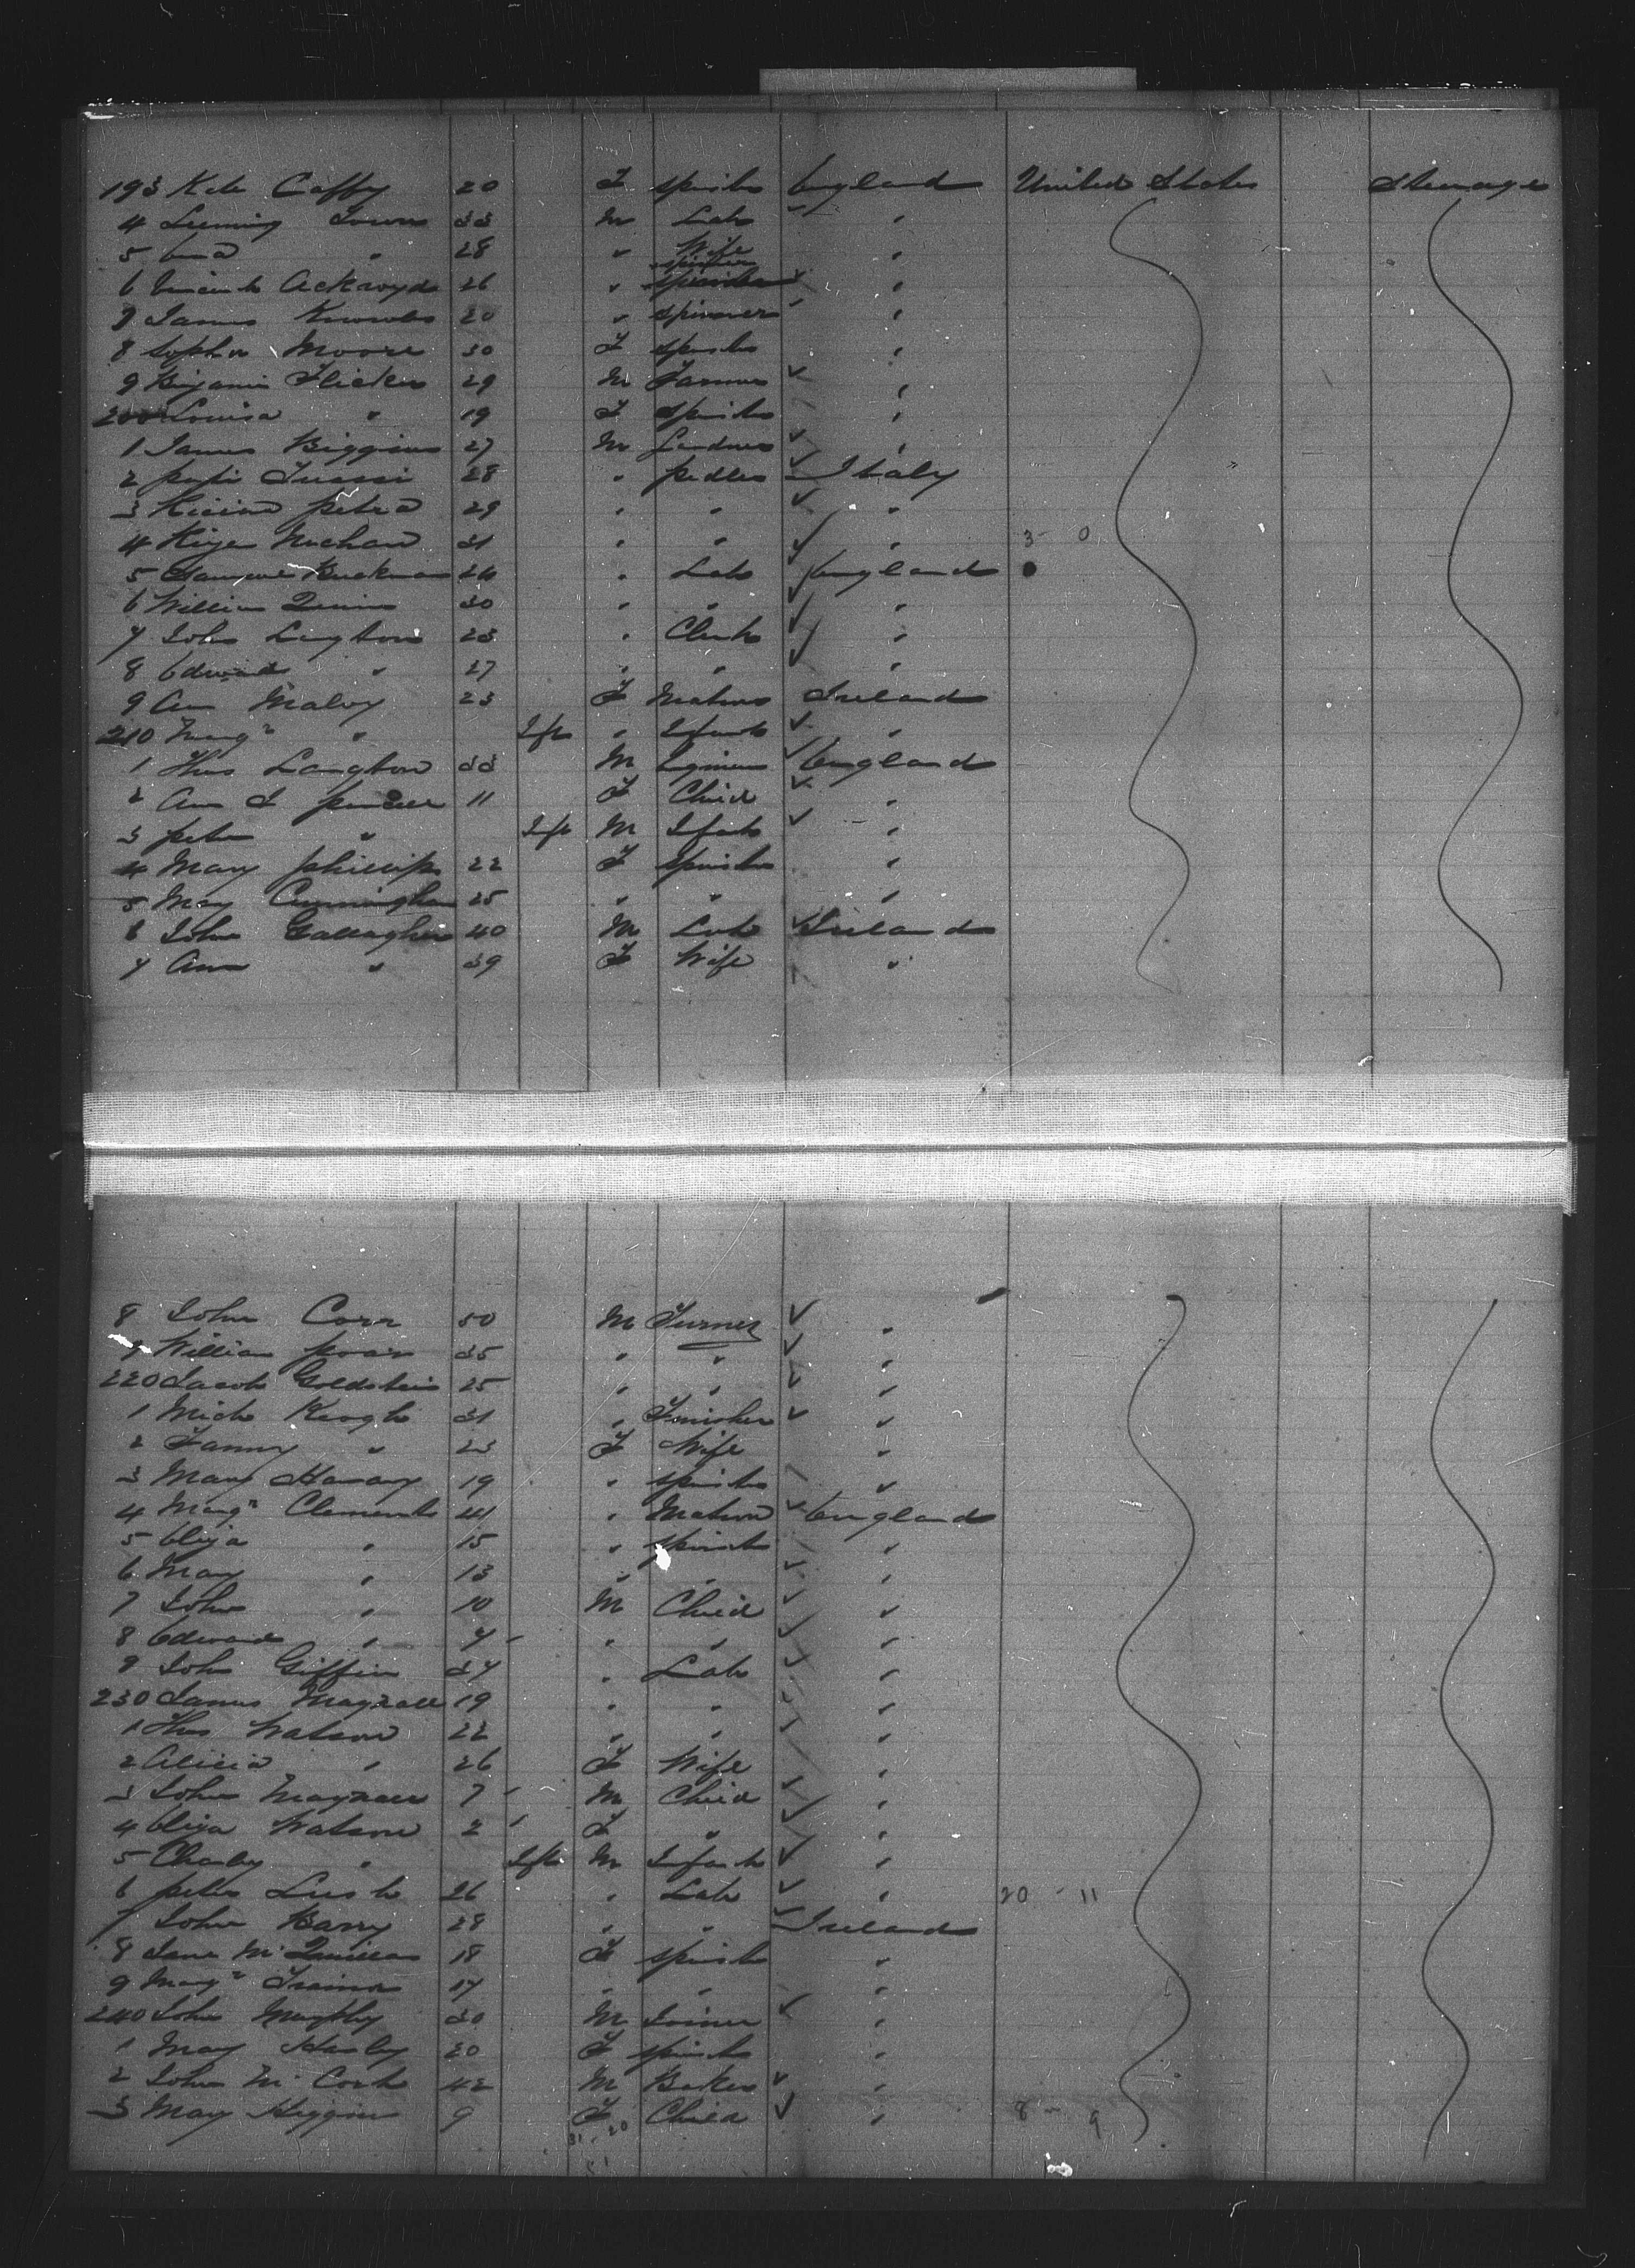 193 Kate Caffy 20 F Spinster England United States Steerage
4 Towns 33 M Lab "
5 " 28 " Wife "
6 Ackroyd 26 " spinner "
7 James Knowles 20 " spinner "
8 Sophia Moore 30 F Spinster "
9 Benjamin Flicker 29 M Farmer "
200 Louisa " 19 F Spinster "
1 James Biggins 27 M "
2 28 " pedler Italy
3 Petra 29 " " "
4 31 " " " 3 - 0
5 Samuel Buckman 26 " Lab England
6 William Quinn 30 " " "
7 John Langton 23 " Clerk "
8 Edward " 27 " " "
9 Ann Maloy 23 F Matron Ireland
210 Margt " Inft " Infant "
1 Thos Langton 33 M Engineer England
2 Ann J 11 F Child "
3 peter " Inft M Infant "
4 Mary phillips 22 F Spinster "
5 Mary Cunningham 25 " " "
6 John Gallagher 40 M Lab Ireland
7 Ann " 39 F Wife "
8 John Carr 50 M Turner "
9 William 35 " " "
220 Jacob Goldstein 25 " " "
1 Mich Keogh 31 " Finisher "
2 Fanny " 23 F Wife "
3 Mary 19 " Spinster "
4 Margt Clements 41 " Matron England
5 Eliza " 15 " spinster "
6 Mary " 13 " " "
7 John " 10 M Child "
8 Edward " 7 " " "
9 John Giffin 37 " Lab "
230 James Magrall 19 " " "
1 Thos Watson 22 " " "
2 Alicia " 26 F Wife "
3 John Magrall 7 M Child "
4 Eliza Watson 2 F " "
5 Charley " Inft M Infant "
6 peter Lush 26 " Lab " 20 - 11
7 John Barry 28 " " Ireland
8 Jane McQuillan 18 F spinster "
9 Margt Trainor 17 " " "
240 John Murphy 30 M Joiner "
1 Mary Hanley 20 F spinster "
2 John McCork 42 M Baker "
3 Mary Higgins 9 F Child " 8 - 9
31 . 20